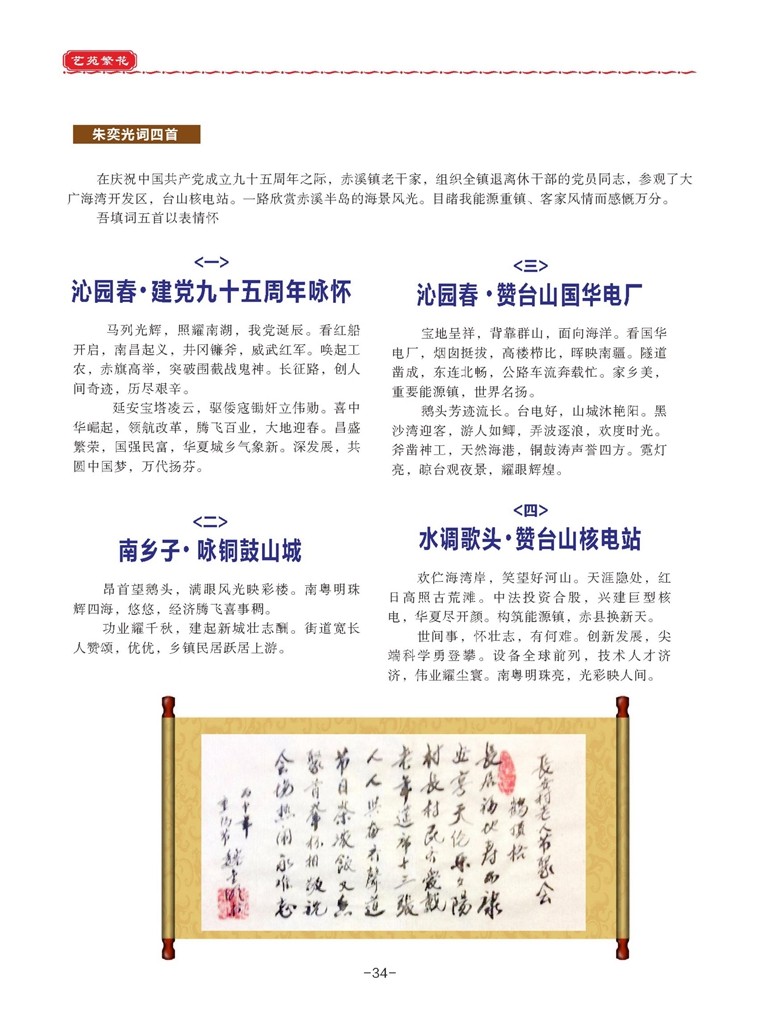 艺苑繁花
朱奕光词四首
在庆祝中国共产党成立九十五周年之际，赤溪镇老干家，组织全镇退离休干部的党员同志，参观了大
广海湾开发区，台山核电站。一路欣赏赤溪半岛的海景风光。目睹我能源重镇、客家风情而感慨万分。
吾填词五首以表情怀
<一>
沁园春·建党九十五周年咏怀
马列光辉，照耀南湖，我党诞辰。看红船
开启，南昌起义，井冈镰斧，威武红军。唤起工
农，赤旗高举，突破围截战鬼神。长征路，创人
间奇迹，历尽艰辛。
延安宝塔凌云，驱倭寇锄奸立伟勋。喜中
华崛起，领航改革，腾飞百业，大地迎春。昌盛
繁荣，国强民富，华夏城乡气象新。深发展，共
圆中国梦，万代扬芬。
<二>
南乡子·咏铜鼓山城
昂首望鹅头，满眼风光映彩楼。南粤明珠
辉四海，悠悠，经济腾飞喜事稠。
功业耀千秋，建起新城壮志酬。街道宽长
人赞颂，优优，乡镇民居跃居上游。
<三>
沁园春·赞台山国华电厂
宝地呈祥，背靠群山，面向海洋。看国华
电厂，烟囱挺拔，高楼栉比，晖映南疆。隧道
凿成，东连北畅，公路车流奔载忙。家乡美，
重要能源镇，世界名扬。
鹅头芳迹流长。台电好，山城沐艳阳。黑
沙湾迎客，游人如鲫，弄波逐浪，欢度时光。
斧凿神工，天然海港，铜鼓涛声誉四方。霓灯
亮，晾台观夜景，耀眼辉煌。
<四>
水调歌头·赞台山核电站
欢伫海湾岸，笑望好河山。天涯隐处，红
日高照古荒滩。中法投资合股，兴建巨型核
电，华夏尽开颜。构筑能源镇，赤县换新天。
世间事，怀壮志，有何难。创新发展，尖
端科学勇登攀。设备全球前列，技术人才济
济，伟业耀尘寰。南粤明珠亮，光彩映人间。
长安村老人节聚会
鹤顶格
长居福地寿而康
安享天伦乐夕阳
村长村民齐爱戴
老年筵席十三张
人人兴奋齐声道
节日荣凌饭又香
聚首举杯相敬祝
会场热闹永难忘
丙申年
重阳节
-34-